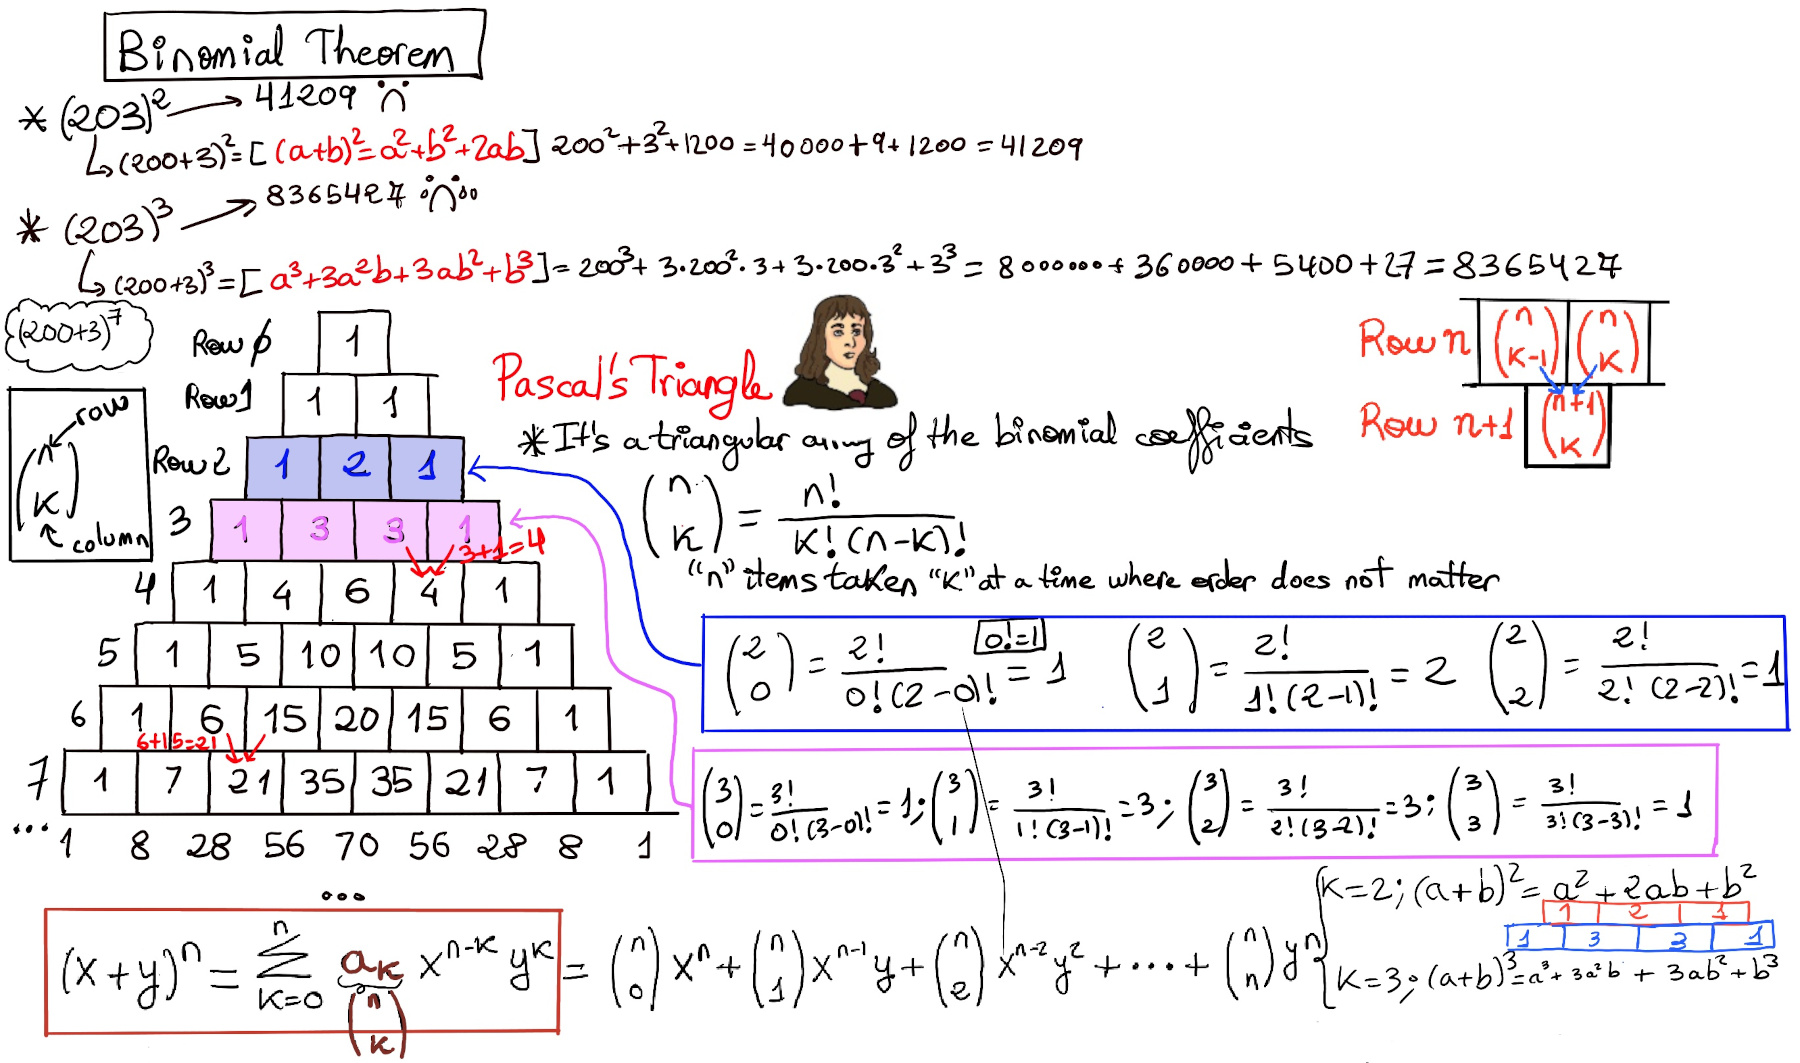 Binomial Theorem
* (203)² → 41209
↳ (200+3)² = [(a+b)² = a²+b²+2ab] 200²+3²+1200 = 40000+9+1200 = 41209
* (203)³ → 8365427
↳ (200+3)³ = [a³+3a²b+3ab²+b³] = 200³+3·200²·3+3·200·3²+3³ = 8000000+360000+5400+27 = 8365427
(200+3)⁷
Row 0 1
Row 1 1 1
Row 2 1 2 1
3 1 3 3 1
3+1=4
4 1 4 6 4 1
5 1 5 10 10 5 1
6 1 6 15 20 15 6 1
6+15=21
7 1 7 21 35 35 21 7 1
... 1 8 28 56 70 56 28 8 1
...
row
(n K)
column
Pascal's Triangle
* It's a triangular array of the binomial coefficients
(n K) = n! / K!(n-K)!
"n" items taken "K" at a time where order does not matter
Row n (n K-1) (n K)
Row n+1 (n+1 K)
(2 0) = 2! / 0!(2-0)! = 1 0!=1 (2 1) = 2! / 1!(2-1)! = 2 (2 2) = 2! / 2!(2-2)! = 1
(3 0) = 3! / 0!(3-0)! = 1; (3 1) = 3! / 1!(3-1)! = 3; (3 2) = 3! / 2!(3-2)! = 3; (3 3) = 3! / 3!(3-3)! = 1
(x+y)ⁿ = Σ n K=0 aK xⁿ⁻ᴷ yᴷ = (n 0) xⁿ + (n 1) xⁿ⁻¹ y + (n 2) xⁿ⁻² y² + ... + (n n) yⁿ
(n K)
K=2; (a+b)² = a² + 2ab + b²
1 2 1
1 3 3 1
K=3; (a+b)³ = a³ + 3a²b + 3ab² + b³